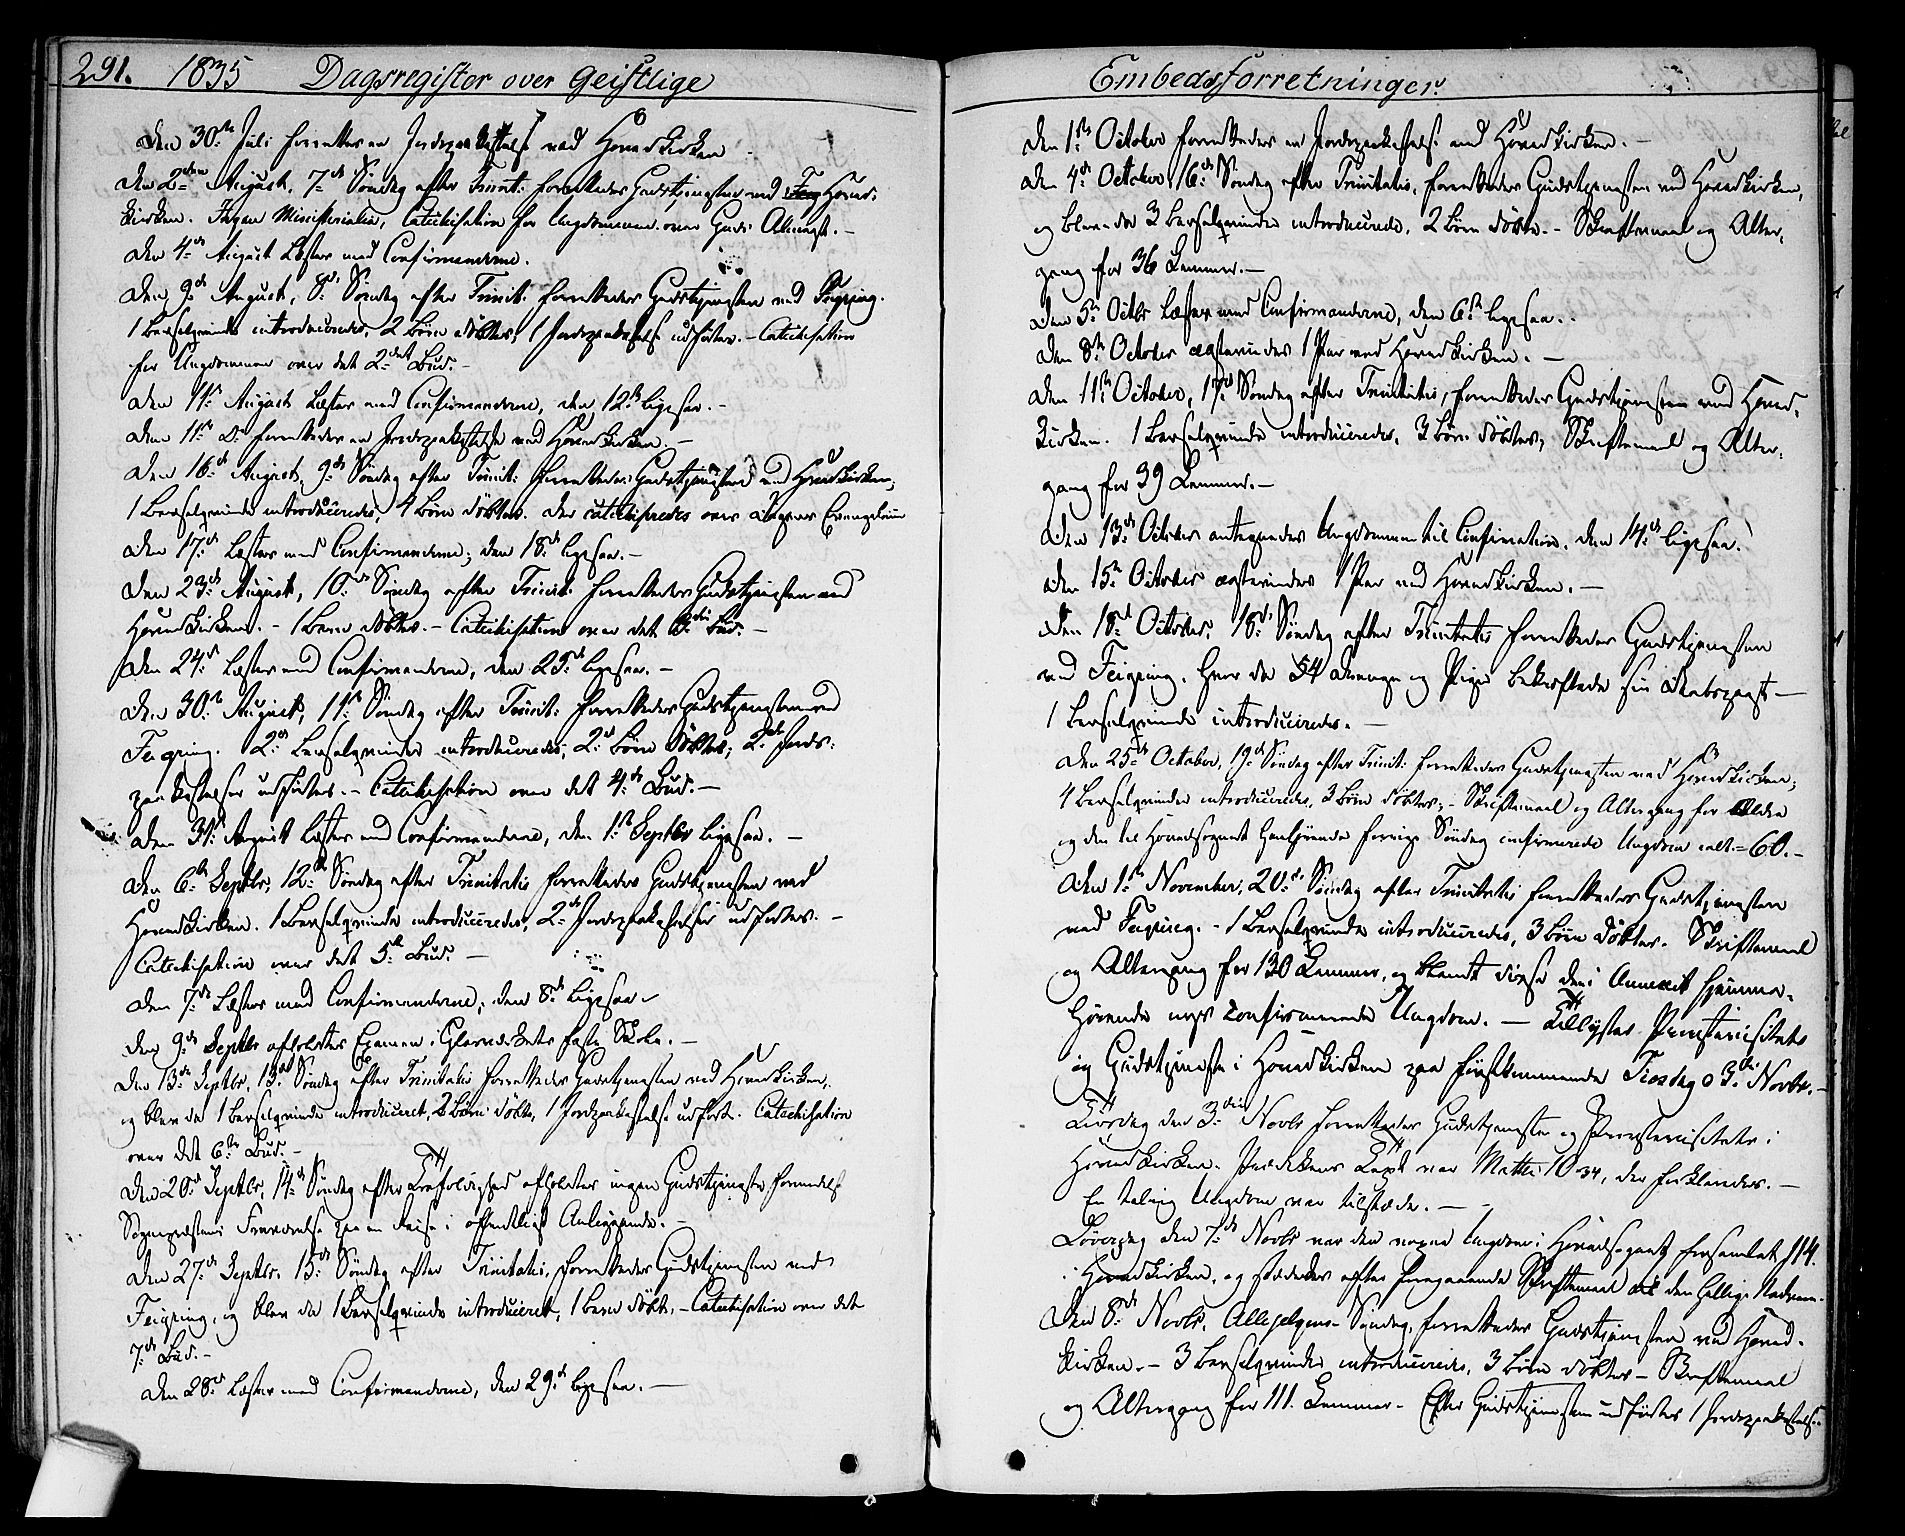 291. 1835 Dagsregister over Geistlige
Den 30te Juli forrettedes en Jordpaakastelse ved Hovedkirken
Den 2den August, 7de Søndag efter Trinit: forrettedes Gudstjenesten ved Hoved-
kirken. Ingen Ministerialia, Catechisation for Ungdommen over Guds Almagt. –
Den 4de August Læstes med Confirmanderne.
Den 9de August, 8de Søndag efter Trinit: forrettedes Gudstjenesten ved Feigring.
1 Barselqvinde introduceredes, 2 Børn døbtes, 1 Jordpaakastelse udførtes. – Catechisation
for Ungdommen over det 2det Bud. –
Den 11te August Læstes med Confirmanderne, den 12te ligesaa. –
Den 11te D: forrettedes en Jordpaakastelse ved Hovedkirken. –
Den 16de August, 9de Søndag efter Trinit: forrettedes Gudstjenesten ved Hovedkirken,
1 Barselqvinde introduceredes, 4 Børn døbtes. Der catechiseredes over Dagens Evangelium
Den 17de Læstes med Confirmanderne; den 18de ligesaa. –
Den 23de August, 10de Søndag efter Trinit: forrettedes Gudstjenesten ved
Hovedkirken. – 1 Barn døbtes. – Catechisation over det 3die Bud. –
Den 24de Læstes med Confirmanderne, den 25de ligesaa. –
Den 30te August, 11te Søndag efter Trinit: forrettedes Gudstjenesten ved
Feigring. 2de Barselqvinder introduceredes; 2de Børn døbtes; 2de Jord-
paakastelser udførtes. – Catechisation over det 4de Bud. –
Den 31te August Læstes med Confirmanderne, den 1ste Septbr ligesaa. –
Den 6te Septbr, 12te Søndag efter Trinitatis forrettedes Gudstjenesten ved
Hovedkirken. 1 Barselqvinde introduceredes, 2de Jordpaakastelser udførtes. –
Catechisation over det 5te Bud. –
Den 7de Læstes med Confirmanderne, den 8de ligesaa –
Den 9de Septbr afholdtes Examen i faste Skole. –
Den 13de Septbr, 13de Søndag efter Trinitatis forrettedes Gudstjenesten ved Hovedkirken,
og blev da 1 Barselqvinde introduceret, 2 Børn døbte, 1 Jordpaakastelse udført. Catechisation
over det 6te Bud. –
Den 20de Septbr, 14de Søndag efter Trefoldighed afholdtes ingen Gudstjeneste formedelst
Sognepræstens Fraværelse paa en Reise i offentligt Anliggende. –
Den 27de Septbr, 15de Søndag efter Trinitatis, forrettedes Gudstjenesten ved
Feigring, og blev da 1 Barselqvinde introduceret, 1 Barn døbt, – Catechisation over det
7de Bud. –
Den 28de Læstes med Confirmanderne, den 29de ligesaa. –
Embedsforretninger.
Den 1ste October forrettedes en Jordpaakastelse ved Hovedkirken. –
Den 4de October, 16de Søndag efter Trinitatis, forrettedes Gudstjenesten ved Hovedkirken,
og bleve da 3 Barselqvinder introducerede, 2 Børn døbte. – Skriftemaal og Alter-
gang for 36 Lemmer. –
Den 5te Octbr Læstes med Confirmanderne, den 6te ligesaa. –
Den 8de October ægteviedes 1 Par ved Hovedkirken. –
Den 11te October, 17de Søndag efter Trinitatis, forrettedes Gudstjenesten ved Hoved-
kirken. 1 Barselqvinde introduceredes, 3 Børn døbtes, Skriftemaal og Alter-
gang for 39 Lemmer. –
Den 13de October antegnedes Ungdommen til Confirmation, den 14de ligesaa.
Den 15de October ægteviedes 1 Par ved Hovedkirken. –
Den 18de October, 18de Søndag efter Trinitatis forrettedes Gudstjenesten
ved Feigring, hvor da 54 Drenge og Piger bekræftede sin Daabspagt –
1 Barselqvinde introduceredes. –
Den 25de October, 19de Søndag efter Trinit: forrettedes Gudstjenesten ved Hovedkirken;
4 Barselqvinder introduceredes, 3 Børn døbtes, – Skriftemaal og Altergang for Ældre
og den til Hovedsognet henhørende forrige Søndag confirmerede Ungdom ialt = 60. –
Den 1ste November, 20de Søndag efter Trinitatis forrettedes Gudstjenesten
ved Feigring. – 1 Barselqvinde introduceredes, 3 Børn døbtes. Skriftemaal
og Altergang for 130 Lemmer, og blandt disse den i Annexet hjemme-
hørende nys confirmerede Ungdom. – Tillystes Provstevisitats
og Gudstjeneste i Hovedkirken paa førstkommende Tirsdag d 3die Novbr. –
Tirsdag den 3die Novbr forrettedes Gudstjeneste og Provstevisitats i
Hovedkirken. Prædikens Text var Matthi 10 34, der forklaredes. –
En talrig Ungdom var tilstede. –
Løverdag den 7de Novbr var den Ungdom i Hovedsognet forsamlet 114.
i Hovedkirken, og stededes efter foregaaende Skriftemaal til den hellige Nadvere.
Den 8de Novbr, Allehelgens-Søndag, forrettedes Gudstjenesten ved Hoved-
kirken. – 3 Barselqvinder introduceredes, 3 Børn døbtes – Skriftemaal
og Altergang for 111. Lemmer – Efter Gudstjenesten udførtes 1 Jordpaakastelse